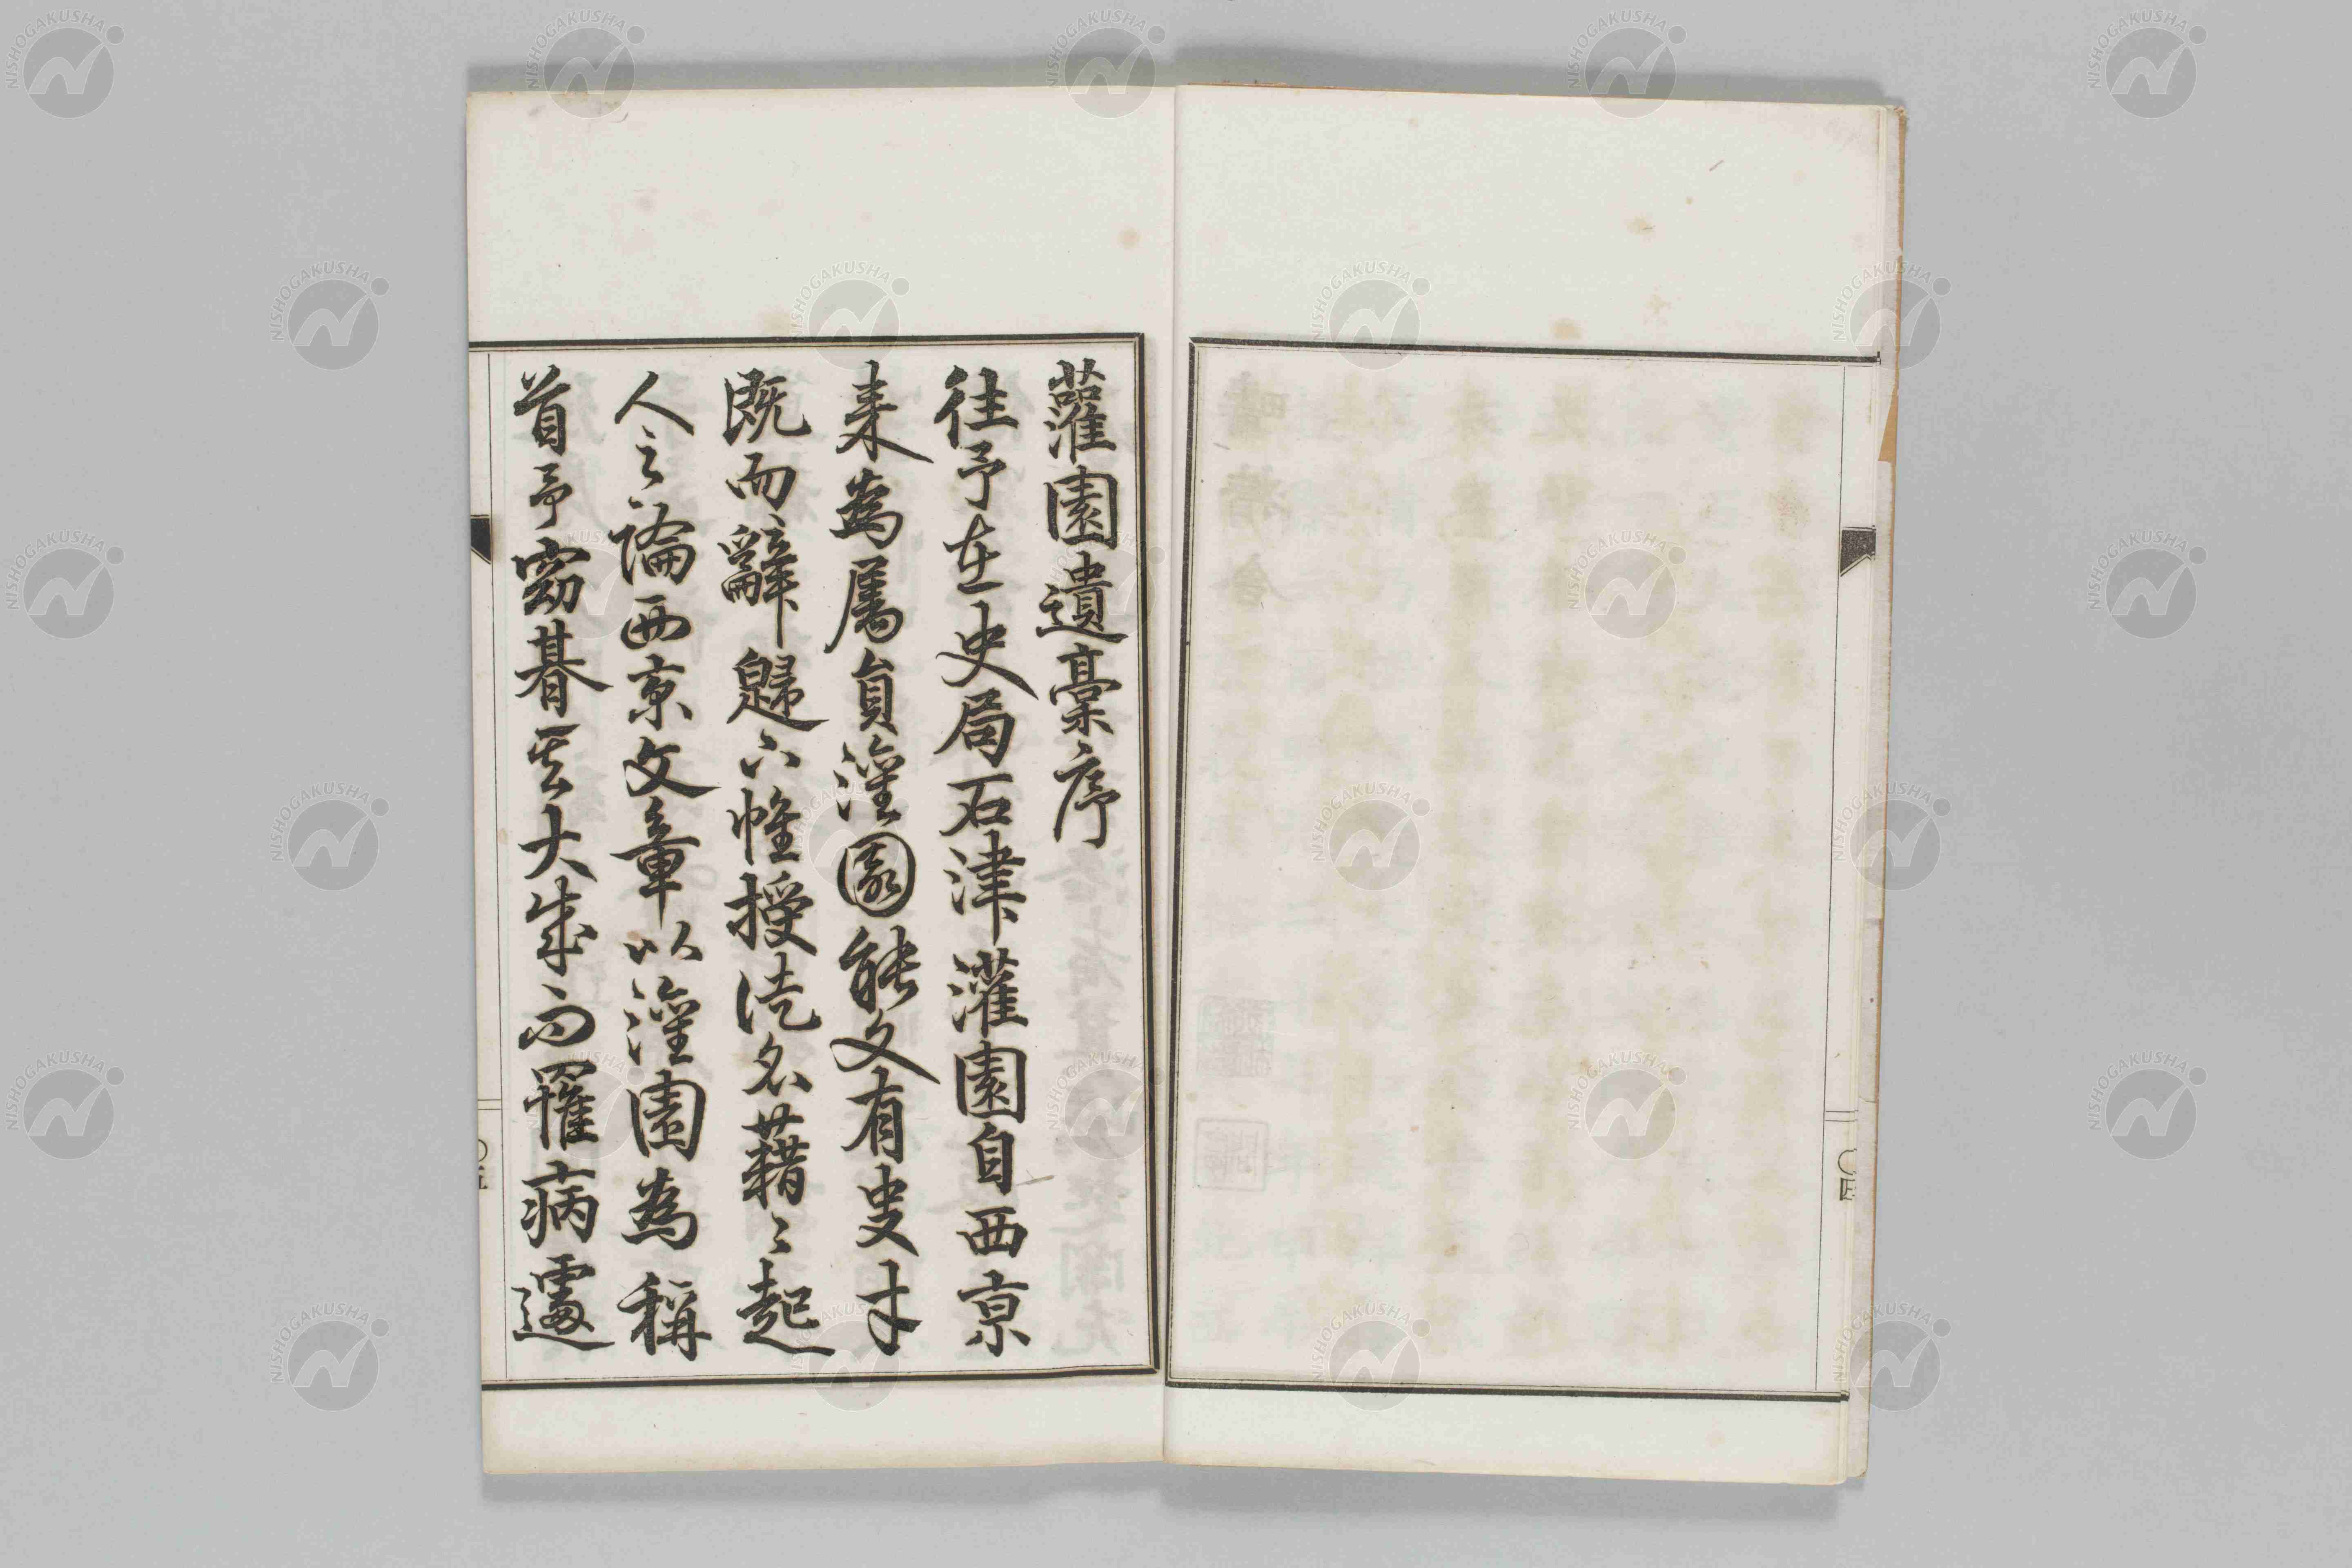 灌園遺稾序
往予在史局石津灌園自西京
来為属員灌園能文有史才
既而辭歸下帷授徒名藉〻起
人之論西京文章以灌園為稱
首予竊朞其大成而罹病遽
〇五
〇四
NISHOGAKUSHA